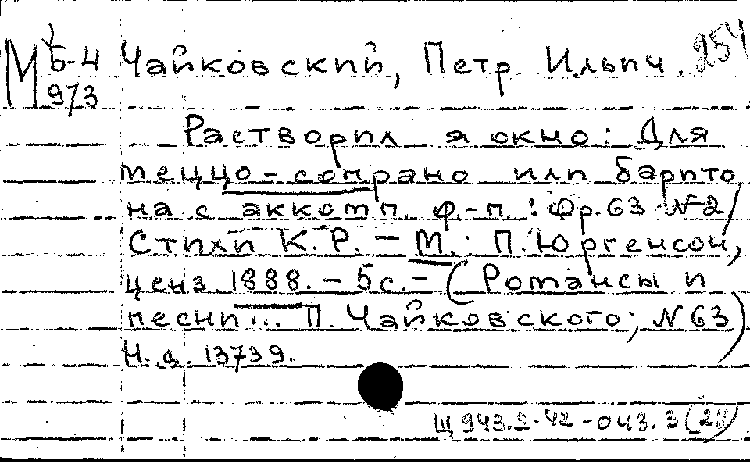 М Б-4 Чайковский, Петр Ильич. 254
973
Растворил я окно: Для
меццо-сопрано или барито
на с акком п. ф.-п. : Op. 63 №2 /
Стихи К. Р. – М.: П. Юргенсон,
ценз. 1888. – 5 с. – (Романсы и
песни... П. Чайковского; №63)
Н. д. 13739.
Щ 943.2-42-043.3